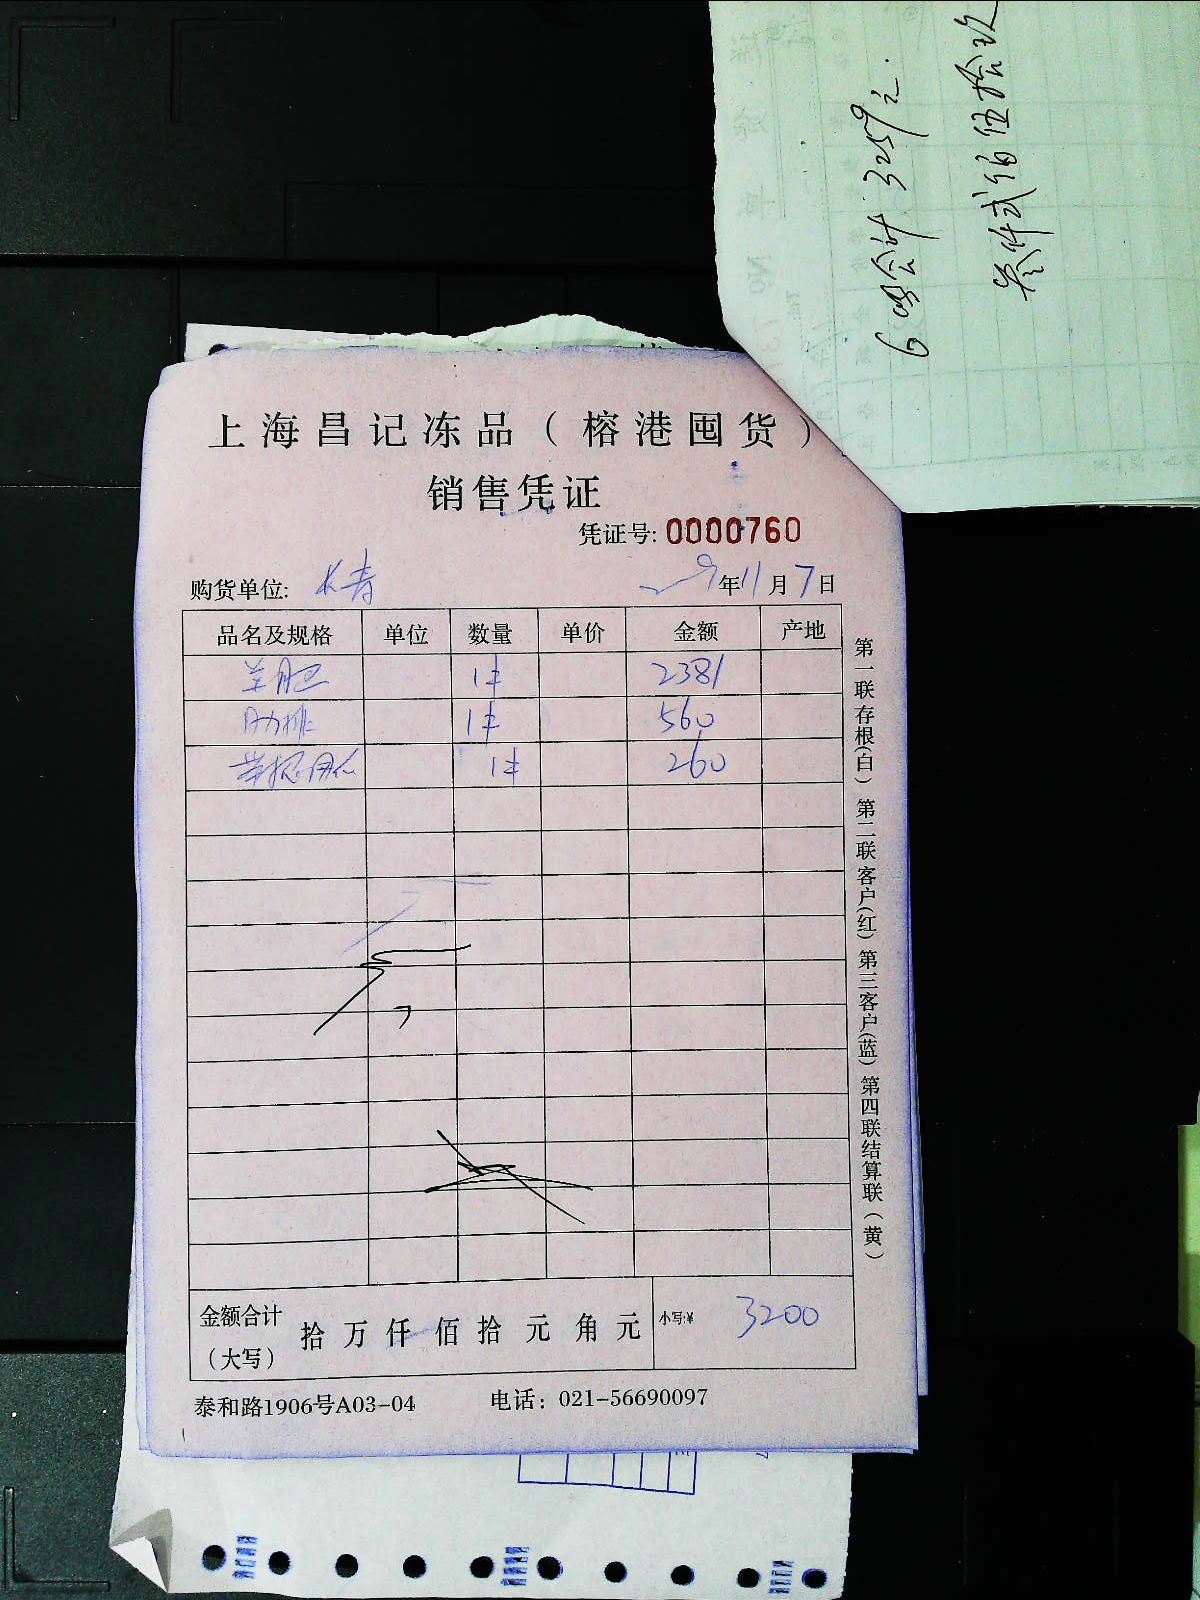 6 单合计 3259元.
叁仟贰佰伍拾玖
上海昌记冻品（榕港囤货）
销售凭证
凭证号: 0000760
购货单位: 长青 年 11 月 7 日
品名及规格 单位 数量 单价 金额 产地
羊肚 1件 2381
肋排 1件 560
1件 260
金额合计（大写） 拾 万 仟 佰 拾 元 角 元 小写:¥ 3200
泰和路1906号A03-04 电话：021-56690097
第一联存根(白) 第二联客户(红) 第三客户(蓝) 第四联结算联（黄）